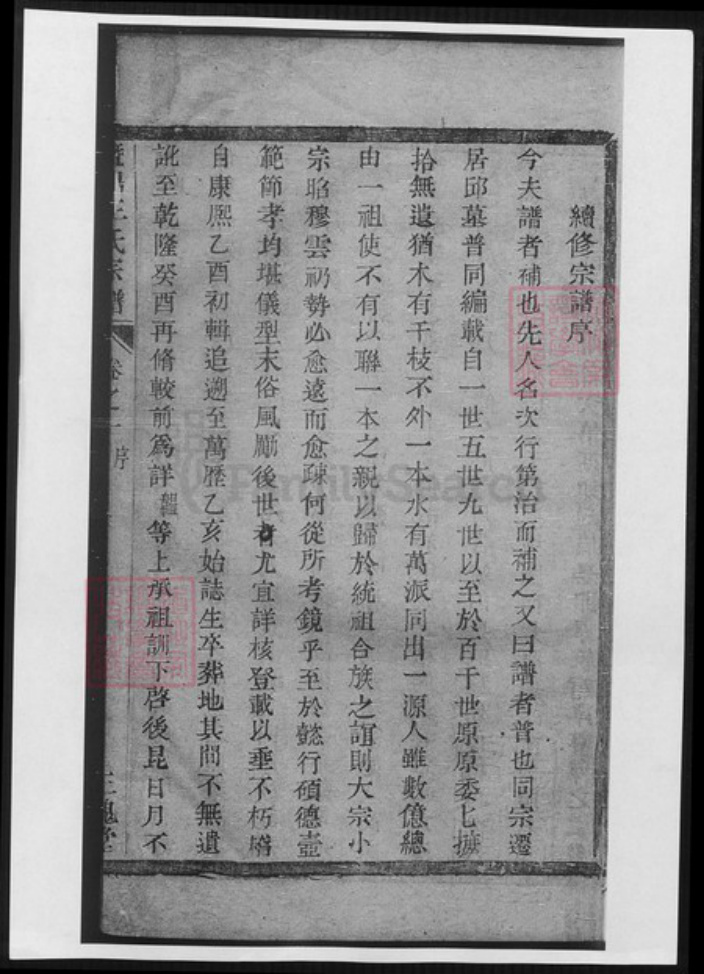 續修宗譜序
今夫譜者補也先人名次行第治而補之又曰譜者普也同宗遷
居邱墓普同編載自一世五世九世以至於百千世原原委七摭
拾無遺猶木有千枝不外一本水有萬派同出一源人雖數億總
由一祖使不有以聯一本之親以歸於統祖合族之誼則大宗小
宗昭穆雲礽勢必愈遠而愈疎何從所考鏡乎至於懿行碩德壼
範節孝均堪儀型末俗風勵後世者尤宜詳核登載以垂不朽
自康熙乙酉初輯追遡至萬歷乙亥始誌生卒葬地其間不無遺
訛至乾隆癸酉再脩較前為詳 等上承祖訓下啓後昆日月不
王氏宗譜 卷之一 序 三槐堂
FamilySearch